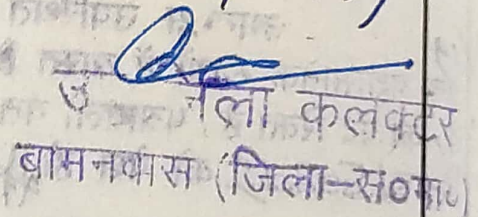 उ   जिला कलक्टर
बामनवास (जिला-स०मा०)